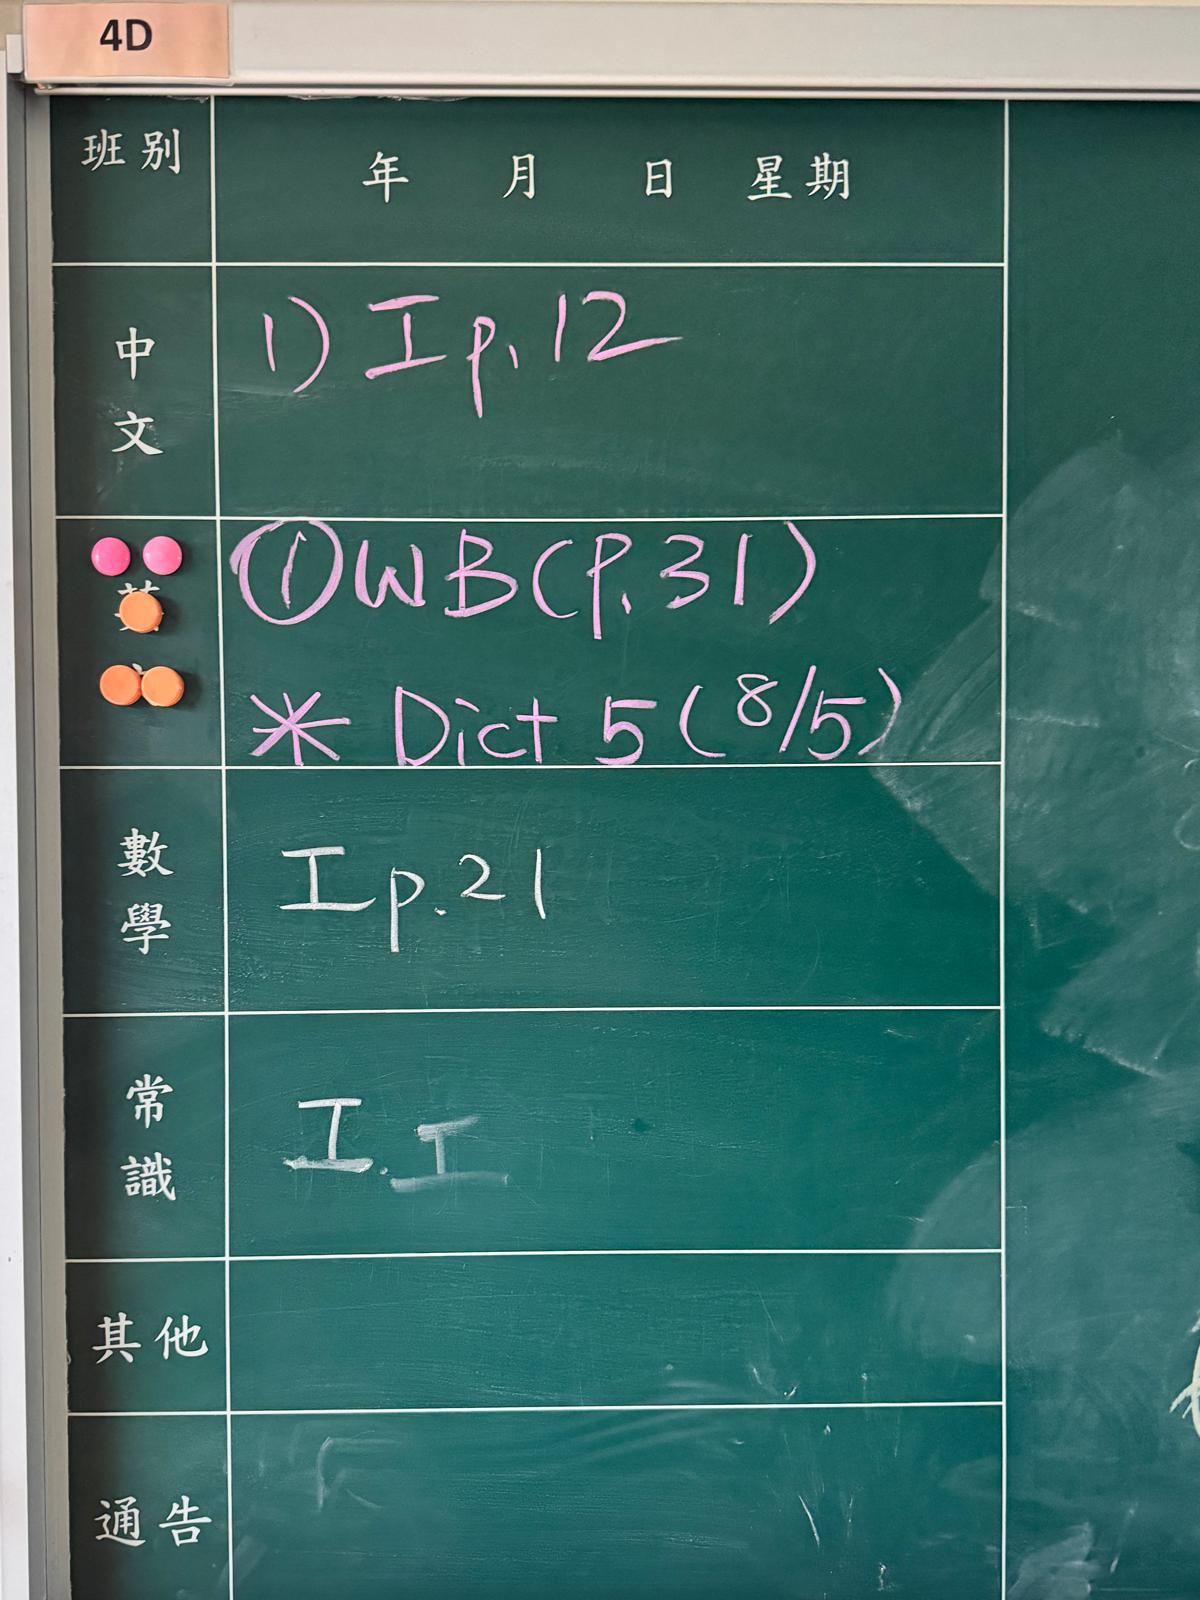 4D
班別
年 月 日 星期
中文
1) 工 p.12
① WB (P.31)
* Dict 5 (8/5)
數學
工 p.21
常識
工. 工
其他
通告